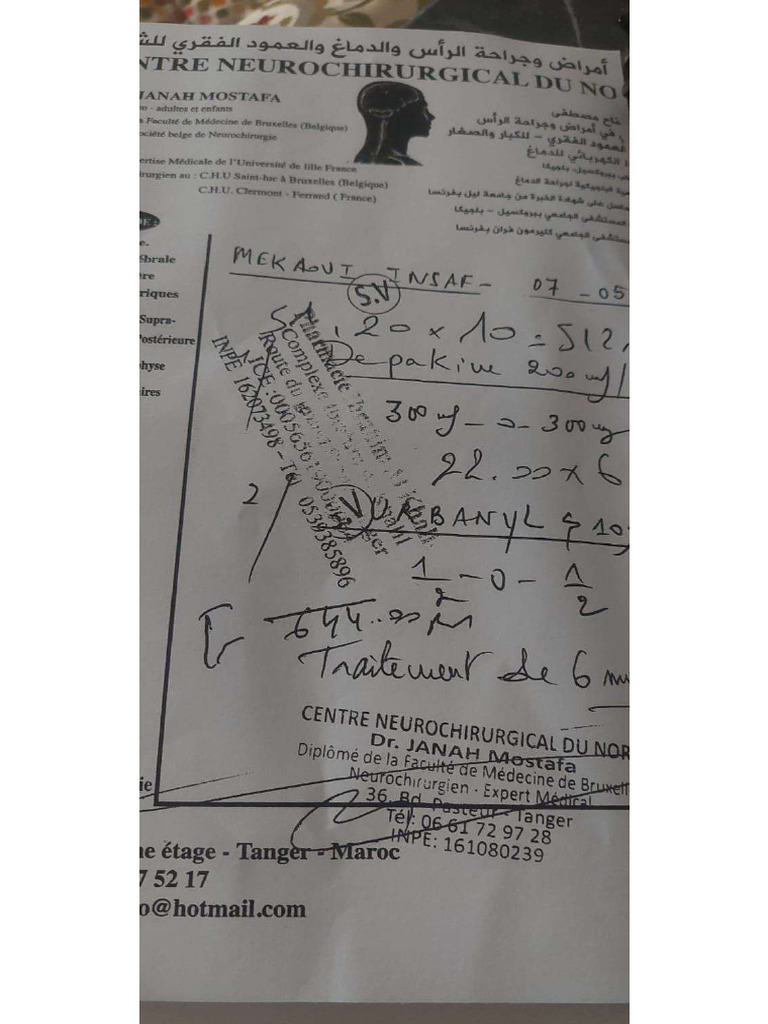 أمراض وجراحة الرأس والدماغ والعمود الفقري للش
NTRE NEUROCHIRURGICAL DU NO
JANAH MOSTAFA
n - adultes et enfants
a Faculté de Médecine de Bruxelles (Belgique)
ociété belge de Neurochirurgie
ertise Médicale de l'Université de lille France
irurgien au : C.H.U Saint-luc à Bruxelles (Belgique)
C.H.U. Clermont - Ferrand ( France)
ناح مصطفى
في أمراض وجراحة الرأس
العمود الفقري - للكبار والصغار
الكهربائي للدماغ
ببروكسيل، بلجيكا
البلجيكية لجراحة الدماغ
حاصل على شهادة الخبرة من جامعة ليل بفرنسا
المستشفى الجامعي ببروكسيل - بلجيكا
مستشفى الجامعي كليرمون فران بفرنسا
DE :
e.
ébrale
ère
riques
Supra-
Postérieure
hyse
ires
MEKAOUI INSAF - 07 - 05
S.V
20 x 10 = 512,
Depakine 200 mg/
300 mg - 0 - 300 mg
22.00 x 6
2/ URBANYL 10
1/2 - 0 - 1/2
644.00
Traitement de 6 m
Pharmacie
Complexe
Route du
ICE :
INPE 162073498 - Tél 0539385896
CENTRE NEUROCHIRURGICAL DU NOR
Dr. JANAH Mostafa
Diplômé de la Faculté de Médecine de Bruxell
Neurochirurgien - Expert Médical
36, Bd. Pasteur - Tanger
Tél: 06 61 72 97 28
INPE: 161080239
ie
ne étage - Tanger - Maroc
7 52 17
o@hotmail.com